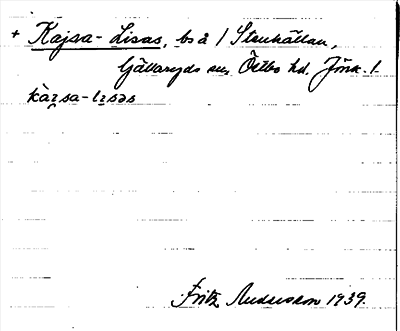 + Kajsa-Lisas, bs å 1 Stenhällan,
Gällaryds sn, Östbo hd. Jönk. l.
kàɪsa-lɪsəs
Fritz Andersson 1939.